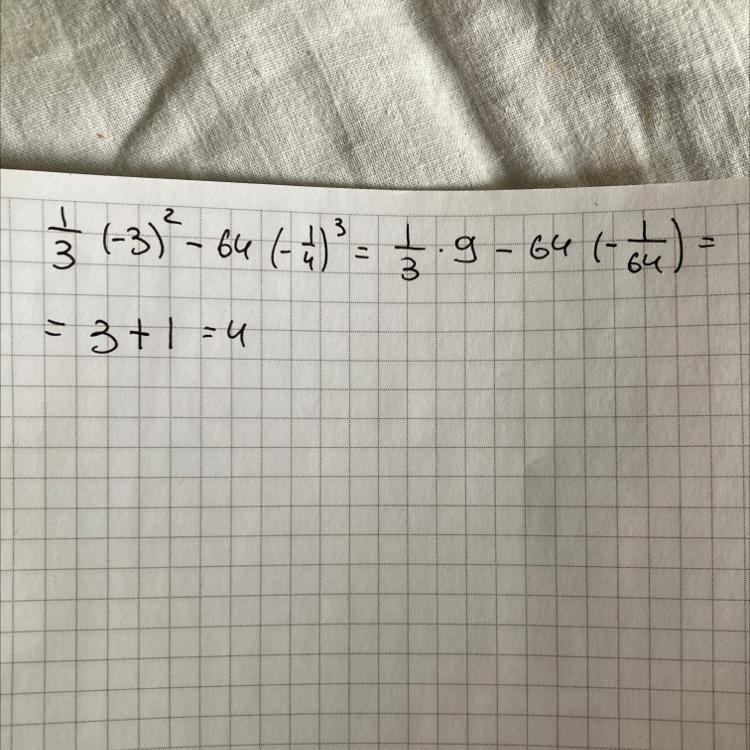 1/3 (-3)² - 64 (-1/4)³ = 1/3 · 9 - 64 (-1/64) =
= 3 + 1 = 4